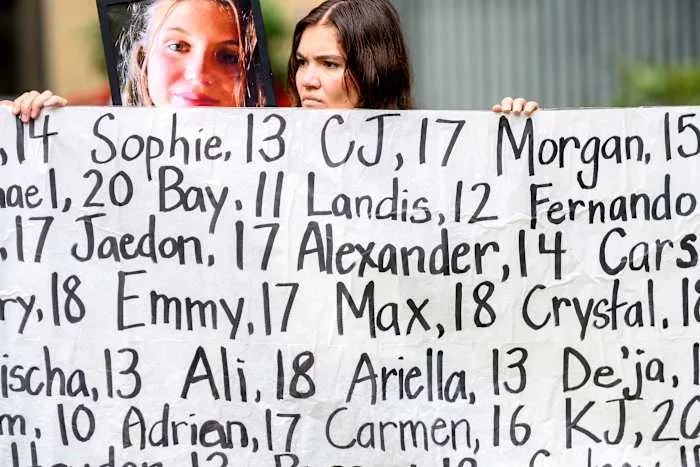 ,14 Sophie, 13 CJ, 17 Morgan, 15
ael, 20 Bay, 11 Landis, 12 Fernando
, 17 Jaedon, 17 Alexander, 14 Cars
ry, 18 Emmy, 17 Max, 18 Crystal, 1
ischa, 13 Ali, 18 Ariella, 13 De'ja, 1
m, 10 Adrian, 17 Carmen, 16 KJ, 20